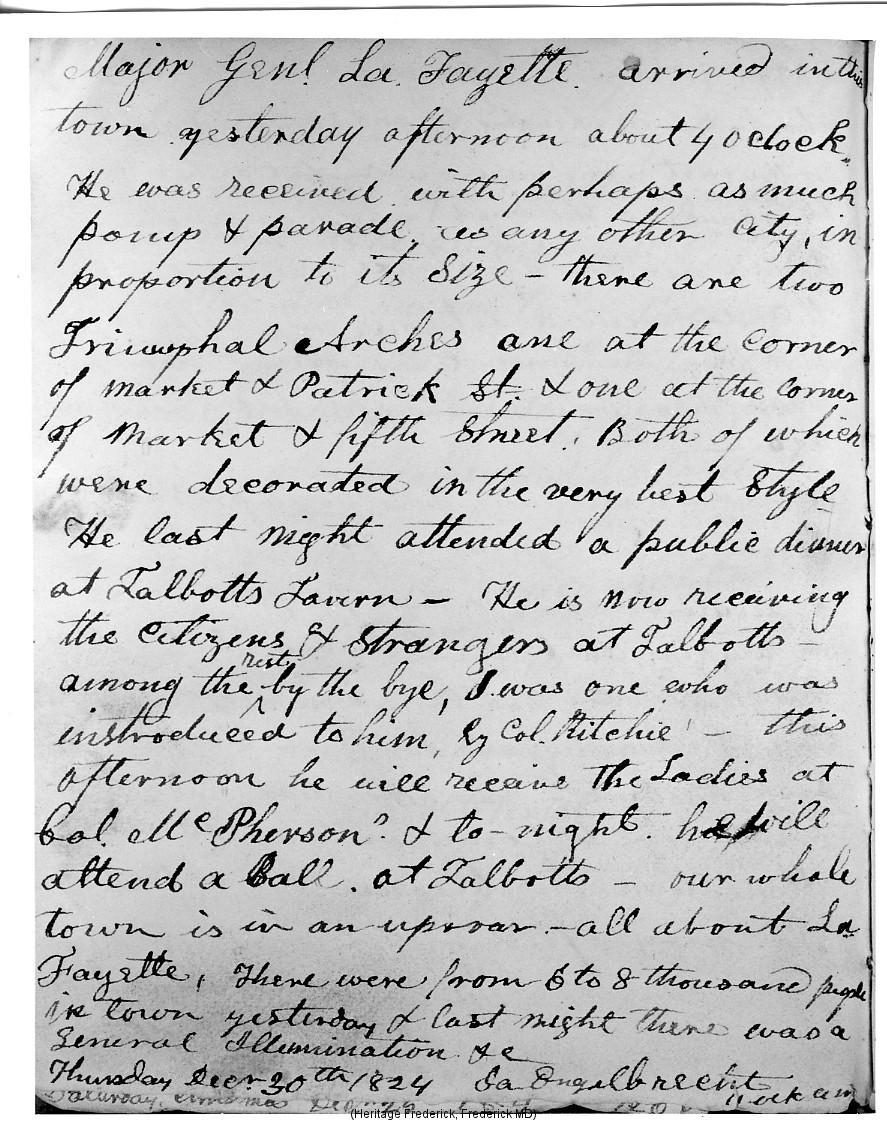 Major Genl. La Fayette. arrived in this
town yesterday afternoon about 4 oclock.
He was received with perhaps as much
pomp & parade, as any other City, in
proportion to its Size - there are two
Triumphal Arches one at the corner
of market & Patrick St. & one at the corner
of Market & fifth Street. Both of which
were decorated in the very best Style
He last night attended a public dinner
at Talbotts Tavern - He is now receiving
the Citizens & Strangers at Talbotts -
rest
among the by the bye, I was one who was
instroduced to him, by Col. Ritchie - this
afternoon he will receive the Ladies at
Col. McPhersons. & to-night. he will
attend a Ball. at Talbotts - our whole
town is in an uproar. - all about La
Fayette, There were from 6 to 8 thousand people
in town yesterday & last night there was a
General Illumination &c
Thursday Decr 30th 1824 Ja Engelbrecht
oclock am
Saturday
(Heritage Frederick, Frederick MD)